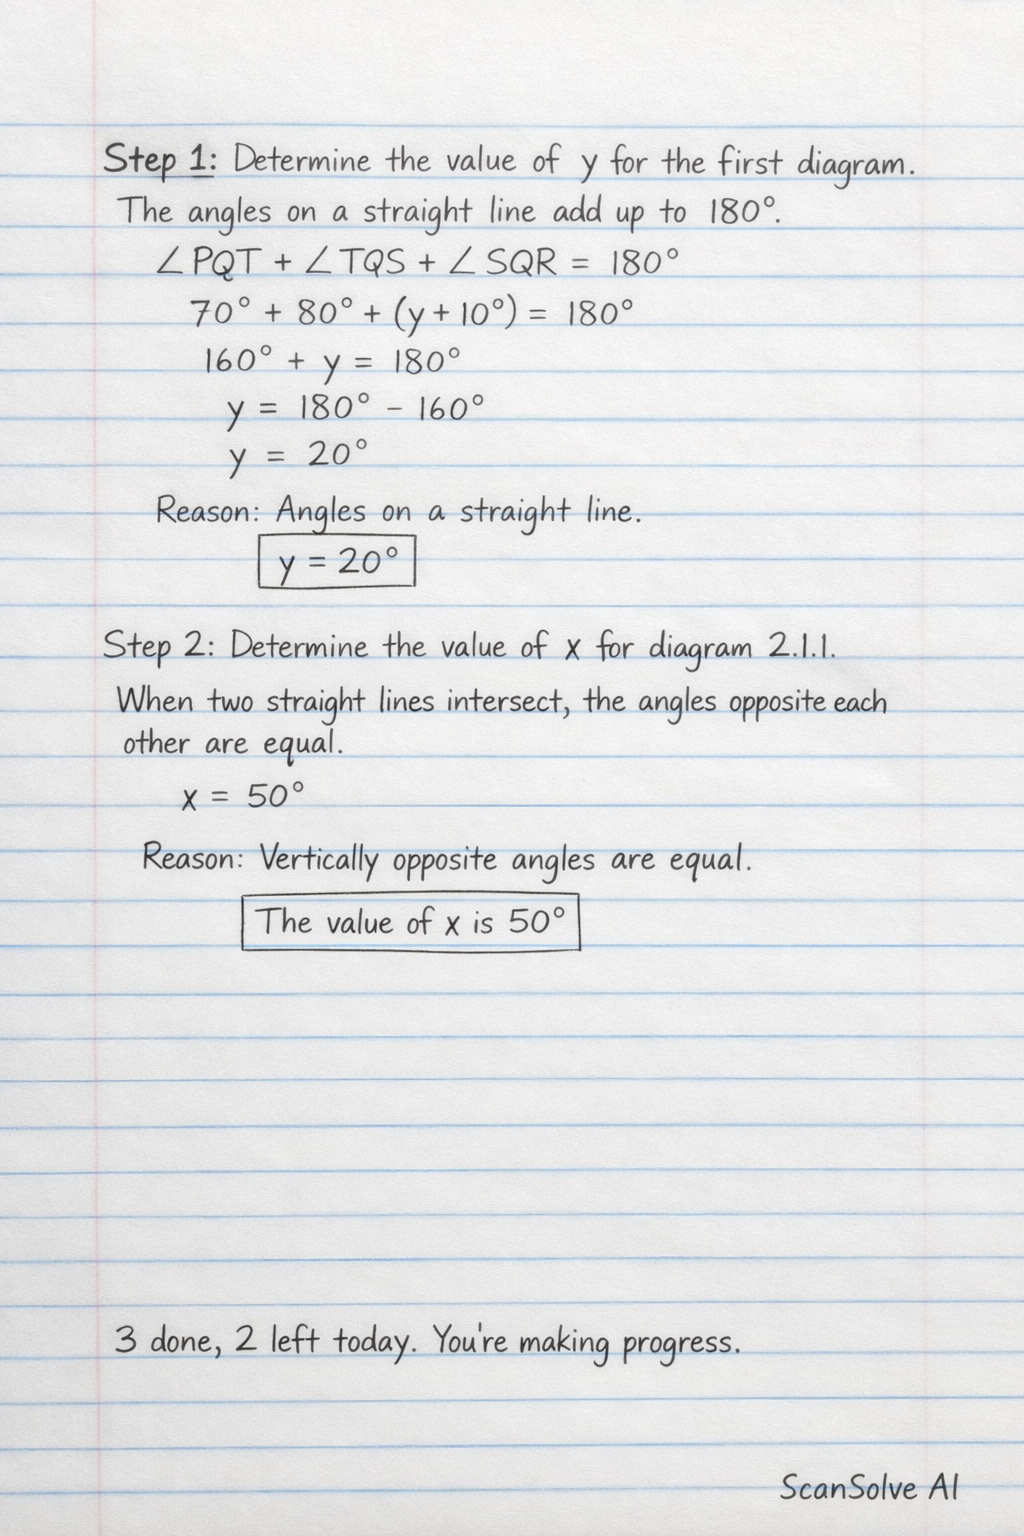 Step 1: Determine the value of y for the first diagram.
The angles on a straight line add up to 180°.
∠PQT + ∠TQS + ∠SQR = 180°
70° + 80° + (y + 10°) = 180°
160° + y = 180°
y = 180° - 160°
y = 20°
Reason: Angles on a straight line.
y = 20°
Step 2: Determine the value of x for diagram 2.1.1.
When two straight lines intersect, the angles opposite each
other are equal.
x = 50°
Reason: Vertically opposite angles are equal.
The value of x is 50°
3 done, 2 left today. You're making progress.
ScanSolve AI